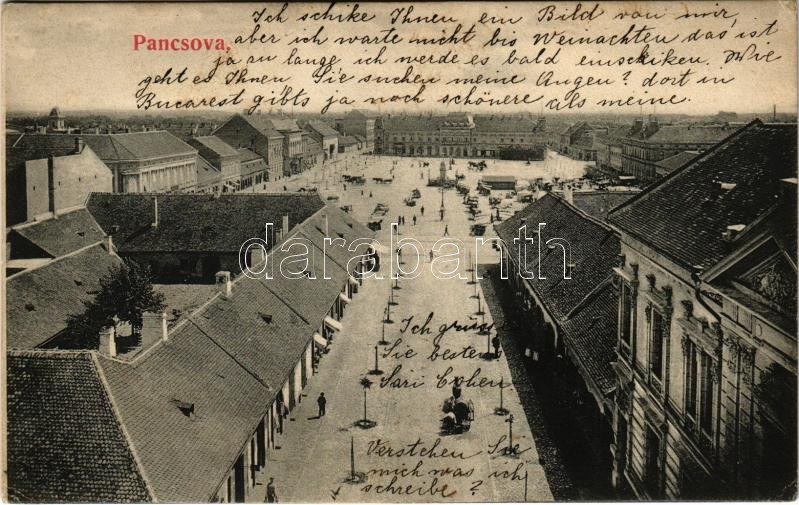 Ich schike Ihnen ein Bild von mir,
Pancsova,
aber ich warte nicht bis Weinachten das ist
ja zu lange ich werde es bald einschiken. Wie
geht es Ihnen Sie suchen meine Augen? dort in
Bucarest gibts ja noch schönere als meine.
darabanth
Ich grüsse
Sie bestens
Sari Cohen
Verstehen Sie
mich was ich
schreibe?